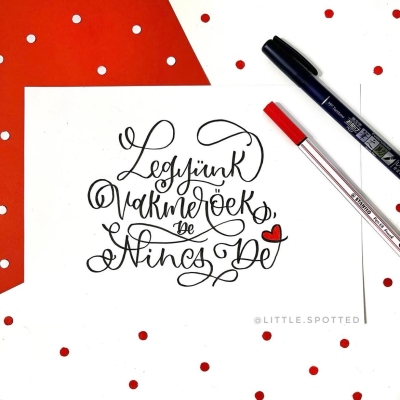 Legyünk
Vakmeröek,
De
Nincs De
@LITTLE.SPOTTED
STABILO